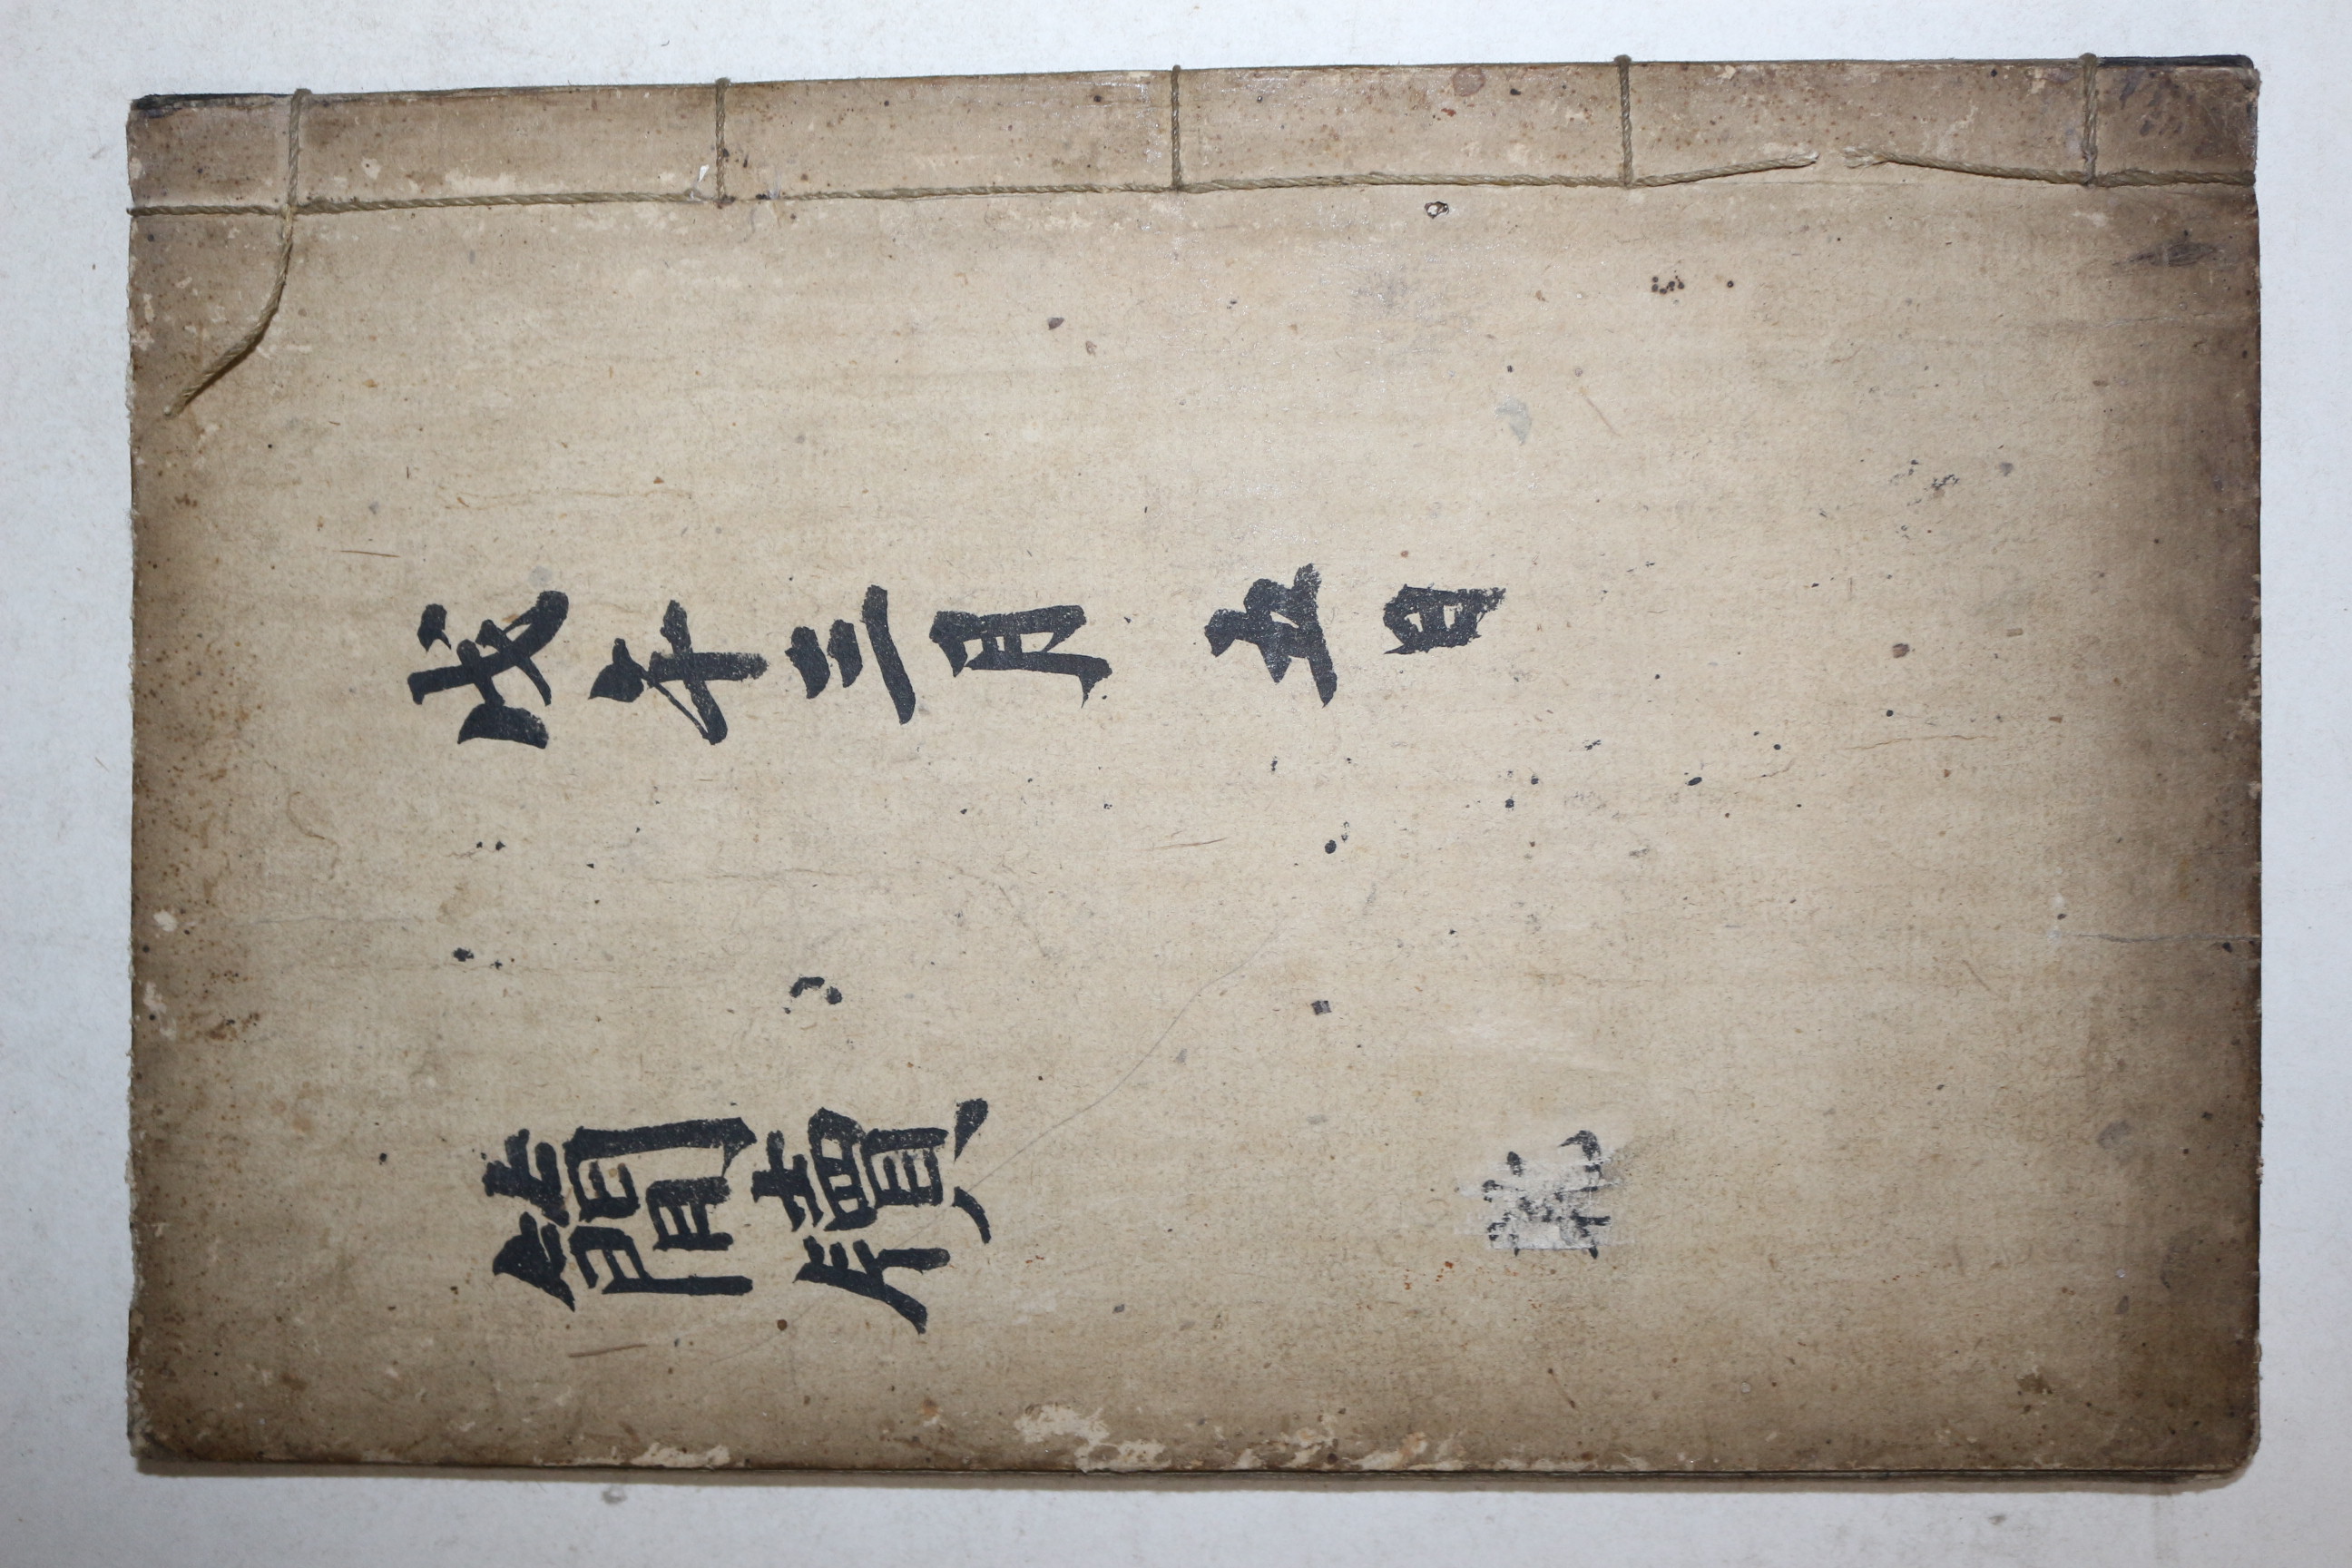 戊午三月五日
簡牘